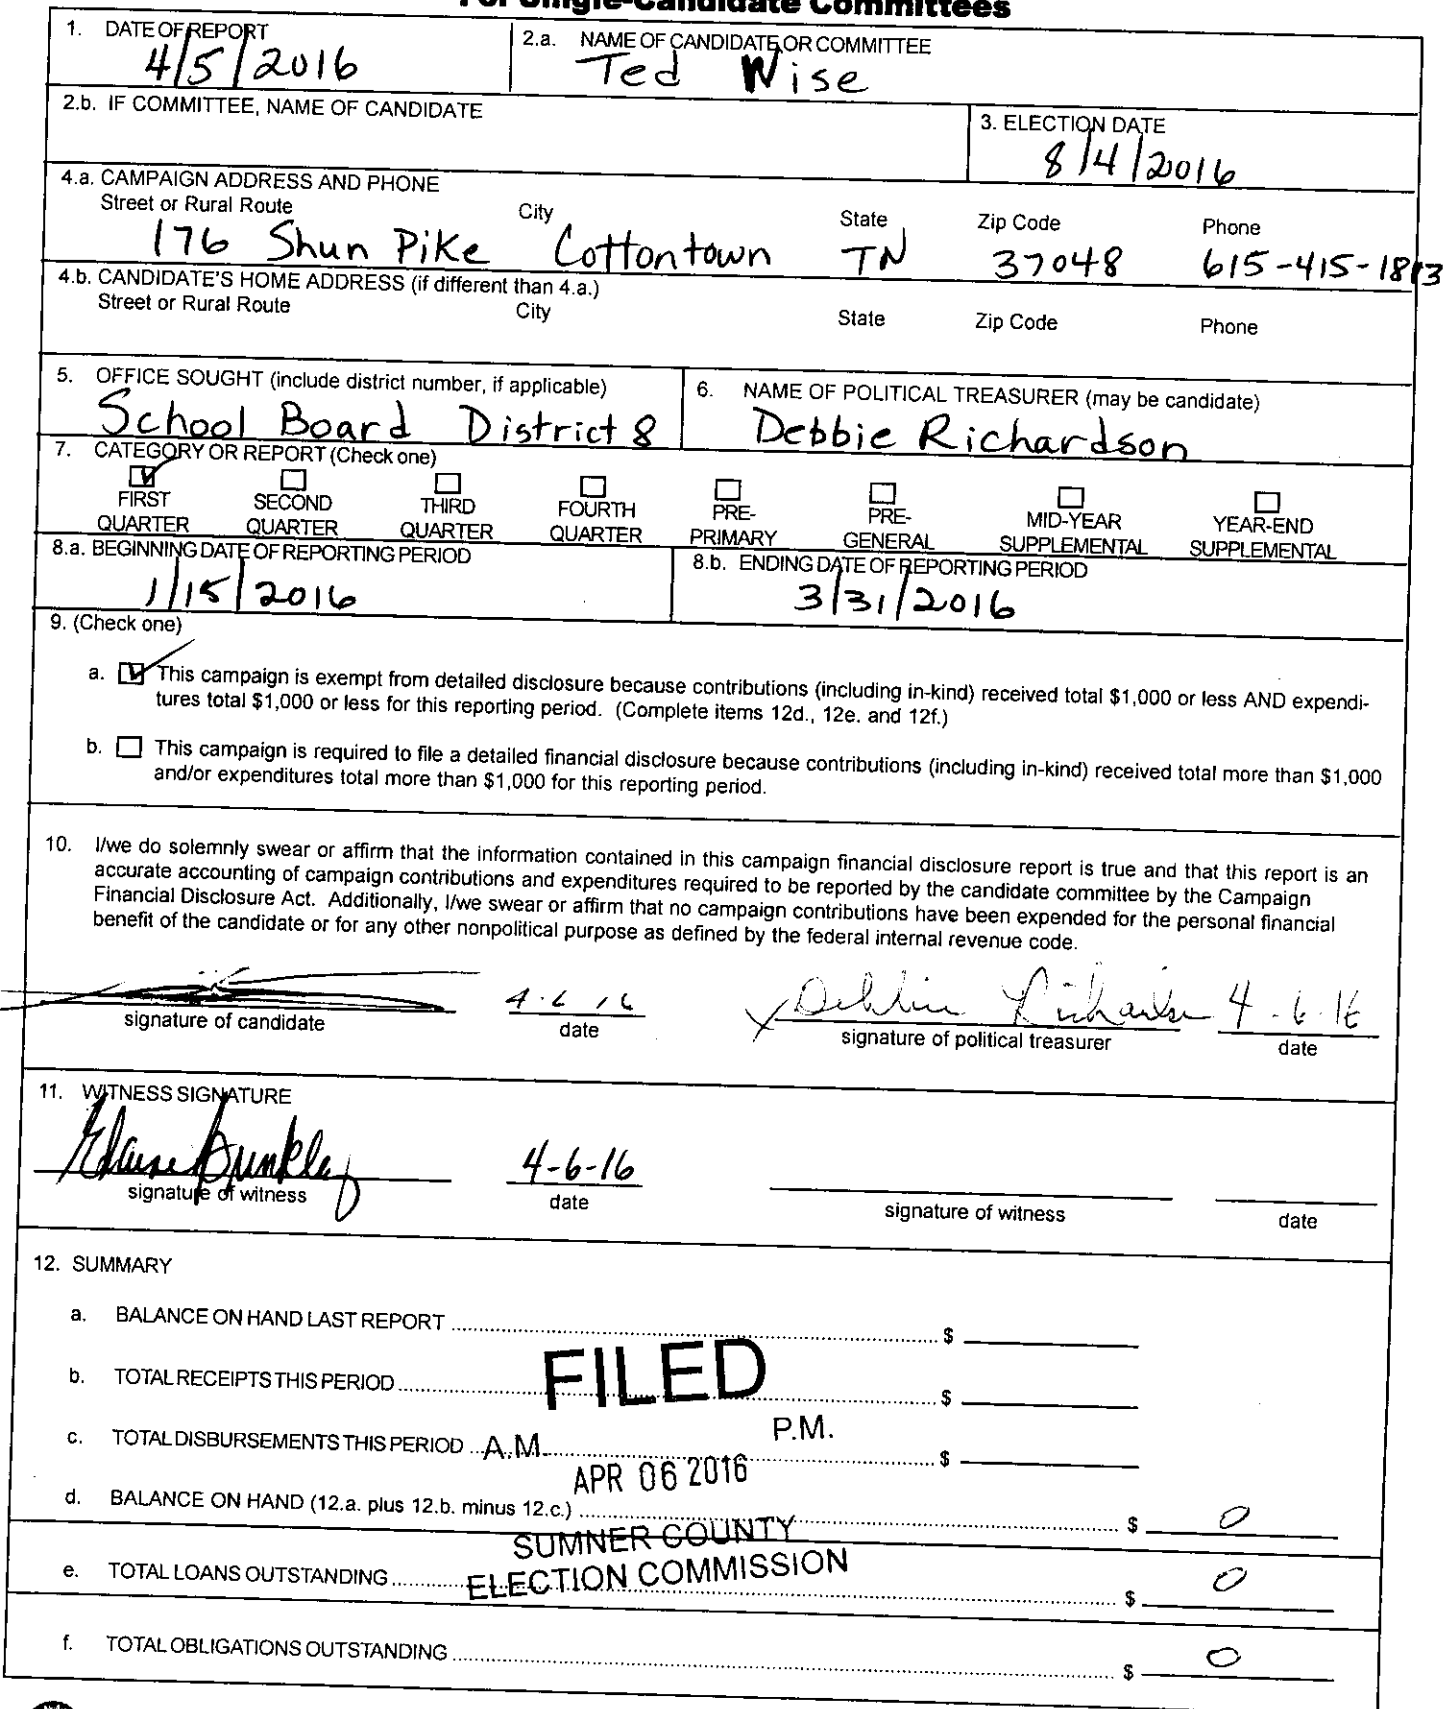 For Single-Candidate Committees
1. DATE OF REPORT
4/5/2016
2.a. NAME OF CANDIDATE OR COMMITTEE
Ted Wise
2.b. IF COMMITTEE, NAME OF CANDIDATE
3. ELECTION DATE
8/4/2016
4.a. CAMPAIGN ADDRESS AND PHONE
Street or Rural Route City State Zip Code Phone
176 Shun Pike Cottontown TN 37048 615-415-1813
4.b. CANDIDATE'S HOME ADDRESS (if different than 4.a.)
Street or Rural Route City State Zip Code Phone
5. OFFICE SOUGHT (include district number, if applicable)
School Board District 8
6. NAME OF POLITICAL TREASURER (may be candidate)
Debbie Richardson
7. CATEGORY OR REPORT (Check one)
FIRST QUARTER
SECOND QUARTER
THIRD QUARTER
FOURTH QUARTER
PRE-PRIMARY
PRE-GENERAL
MID-YEAR SUPPLEMENTAL
YEAR-END SUPPLEMENTAL
8.a. BEGINNING DATE OF REPORTING PERIOD
1/15/2016
8.b. ENDING DATE OF REPORTING PERIOD
3/31/2016
9. (Check one)
a. This campaign is exempt from detailed disclosure because contributions (including in-kind) received total $1,000 or less AND expendi-
tures total $1,000 or less for this reporting period. (Complete items 12d., 12e. and 12f.)
b. This campaign is required to file a detailed financial disclosure because contributions (including in-kind) received total more than $1,000
and/or expenditures total more than $1,000 for this reporting period.
10. I/we do solemnly swear or affirm that the information contained in this campaign financial disclosure report is true and that this report is an
accurate accounting of campaign contributions and expenditures required to be reported by the candidate committee by the Campaign
Financial Disclosure Act. Additionally, I/we swear or affirm that no campaign contributions have been expended for the personal financial
benefit of the candidate or for any other nonpolitical purpose as defined by the federal internal revenue code.
4-6-16 Debbie Richardson 4-6-16
signature of candidate date signature of political treasurer date
11. WITNESS SIGNATURE
4-6-16
signature of witness date signature of witness date
12. SUMMARY
a. BALANCE ON HAND LAST REPORT $
FILED
b. TOTAL RECEIPTS THIS PERIOD $
c. TOTAL DISBURSEMENTS THIS PERIOD $
A.M. P.M.
APR 06 2016
d. BALANCE ON HAND (12.a. plus 12.b. minus 12.c.) $ 0
SUMNER COUNTY
ELECTION COMMISSION
e. TOTAL LOANS OUTSTANDING $ 0
f. TOTAL OBLIGATIONS OUTSTANDING $ 0